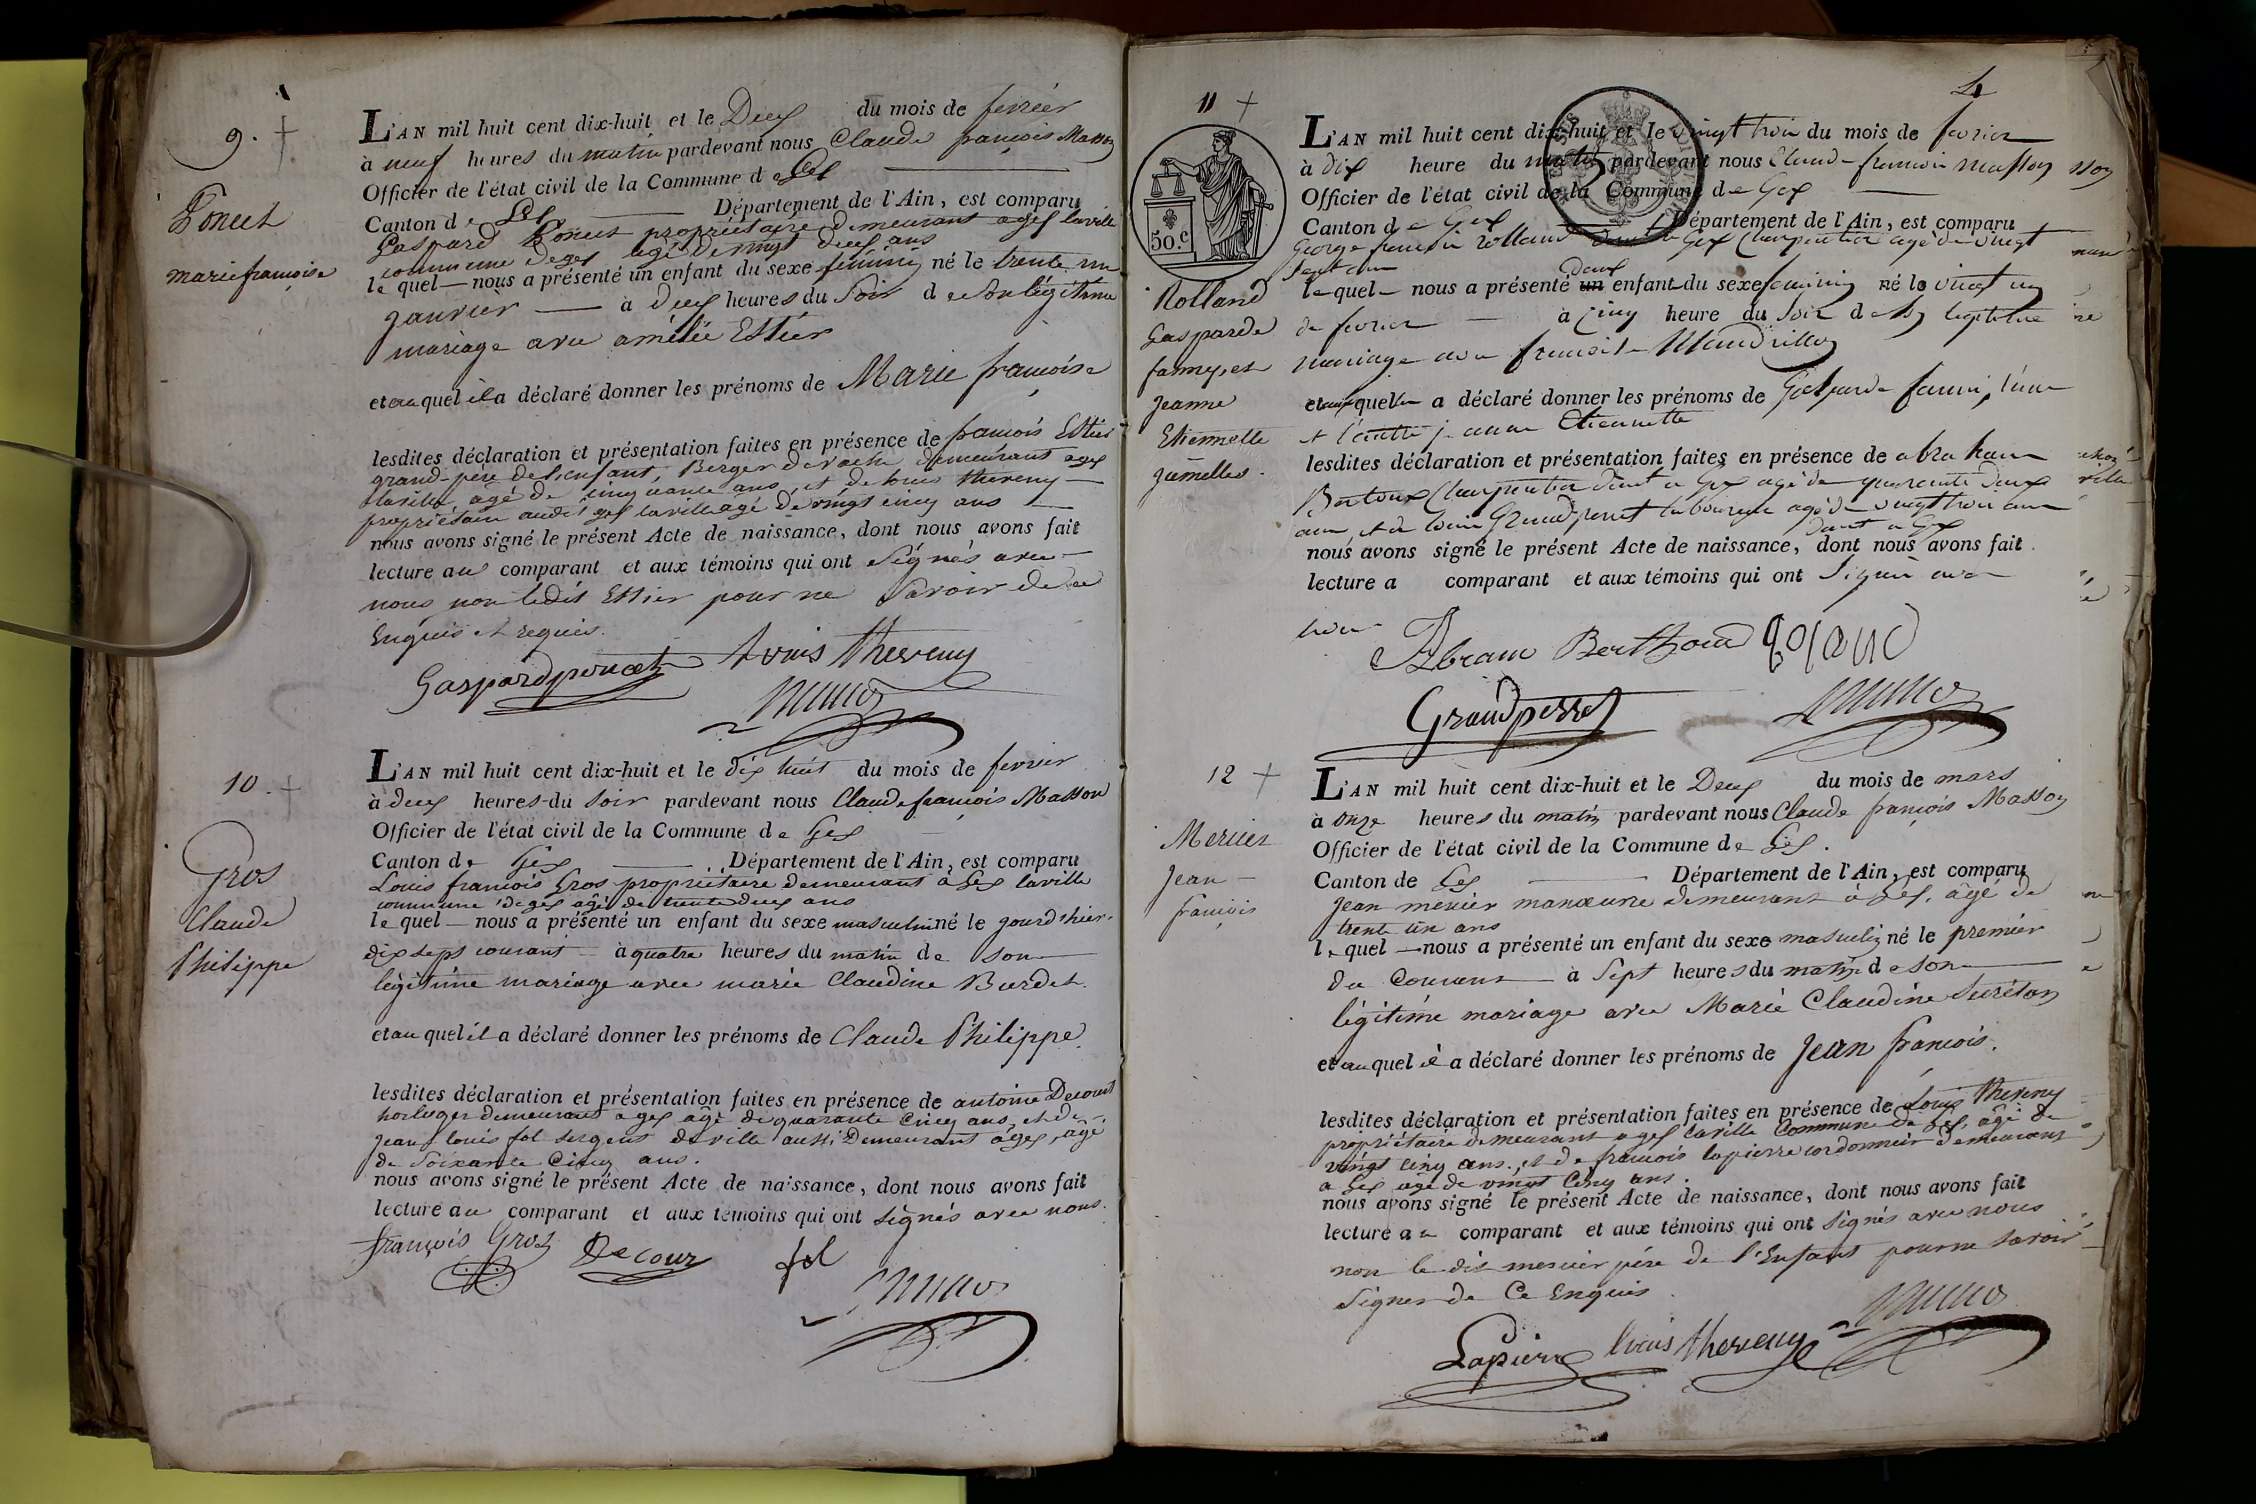 9.
Poncet
marie françoise
L'AN mil huit cent dix-huit et le Deux du mois de fevrier
à neuf heures du matin pardevant nous Claude françois Masson
Officier de l'état civil de la Commune de Gex
Canton de Gex Département de l'Ain, est comparu
Gaspard Poncet propriétaire demeurant a gex laville
commune de gex agé de vingt deux ans
lequel nous a présenté un enfant du sexe feminin né le trente un
janvier à deux heures du Soir de Son légitime
mariage avec amélie Estier
et au quel il a déclaré donner les prénoms de Marie françoise
lesdites déclaration et présentation faites en présence de françois Estier
grand-père de l'enfant, Berger de vache demeurant a gex
laville agé de cinquante ans, et de louis thereny
propriétaire audit gex laville agé de vingt cinq ans
nous avons signé le présent Acte de naissance, dont nous avons fait
lecture au comparant et aux témoins qui ont Signés avec
nous non ledit Estier pour ne Savoir de ce
Enquis et requis.
Gaspard poncet louis thereny
10.
Gros
Claude
Philippe
L'AN mil huit cent dix-huit et le dix huit du mois de fevrier
à deux heures du soir pardevant nous Claude françois Masson
Officier de l'état civil de la Commune de Gex
Canton de Gex Département de l'Ain, est comparu
Louis françois Gros propriétaire demeurant à Gex laville
commune de gex agé de trente deux ans
lequel nous a présenté un enfant du sexe masculin né le jourd'hier
dix sept courant à quatre heures du matin de Son
légitime mariage avec marie Claudine Burdet.
et au quel il a déclaré donner les prénoms de Claude Philippe
lesdites déclaration et présentation faites en présence de antoine Decourt
horloger demeurant a gex agé de quarante Cinq ans, et de
Jean louis fol sergent de ville aussi Demeurant à gex, âgé
de Soixante Cinq ans.
nous avons signé le présent Acte de naissance, dont nous avons fait
lecture au comparant et aux témoins qui ont signés avec nous.
françois Gros Decour fol
4
11
50.C
Rolland
Gasparde
fanny, et
Jeanne
Etiennette
jumelles.
L'AN mil huit cent dix-huit et le vingt trois du mois de fevrier
à dix heure du matin pardevant nous Claude francois masson
Officier de l'état civil de la Commune de Gex
Canton de Gex Département de l'Ain, est comparu
George francois rolland dmt a Gex Charpentier agé de vingt
sept ans
lequel nous a présenté un deux enfant du sexe feminin né le vingt un
de fevrier à cinq heure du Soir de Son legitime
mariage avec francoise Mandrillon
et auxquelles a déclaré donner les prénoms de Gasparde fanni, l'une
et l'autre jeanne Etiennette
lesdites déclaration et présentation faites en présence de abraham
Bertoux Charpentier dmt a Gex agé de quarante deux
ans, et de louis Grandperret laboureur agé de vingt trois ans
dmt a Gex
nous avons signé le présent Acte de naissance, dont nous avons fait
lecture a comparant et aux témoins qui ont Signé avec
nous
Abram Berthoud Roland
Grandperret
12
Mercier
Jean
françois
L'AN mil huit cent dix-huit et le Deux du mois de mars
à onze heures du matin pardevant nous Claude françois Masson
Officier de l'état civil de la Commune de Gex.
Canton de Gex Département de l'Ain, est comparu
Jean mercier manœuvre demeurant à Gex, âgé de
trente un ans
lequel nous a présenté un enfant du sexe masculin né le premier
du Courant à Sept heures du matin de son
légitime mariage avec Marie Claudine Sureton
et au quel il a déclaré donner les prénoms de Jean françois.
lesdites déclaration et présentation faites en présence de Louis thereny
propriétaire demeurant a gex laville Commune de Gex, âgé de
vingt cinq ans, et de françois lapierre cordonnier demeurant
a Gex agé de vingt Cinq ans.
nous avons signé le présent Acte de naissance, dont nous avons fait
lecture au comparant et aux témoins qui ont Signés avec nous
non le dit mercier père de l'Enfant pour ne Savoir
Signer de Ce Enquis.
Lapierre louis thereny